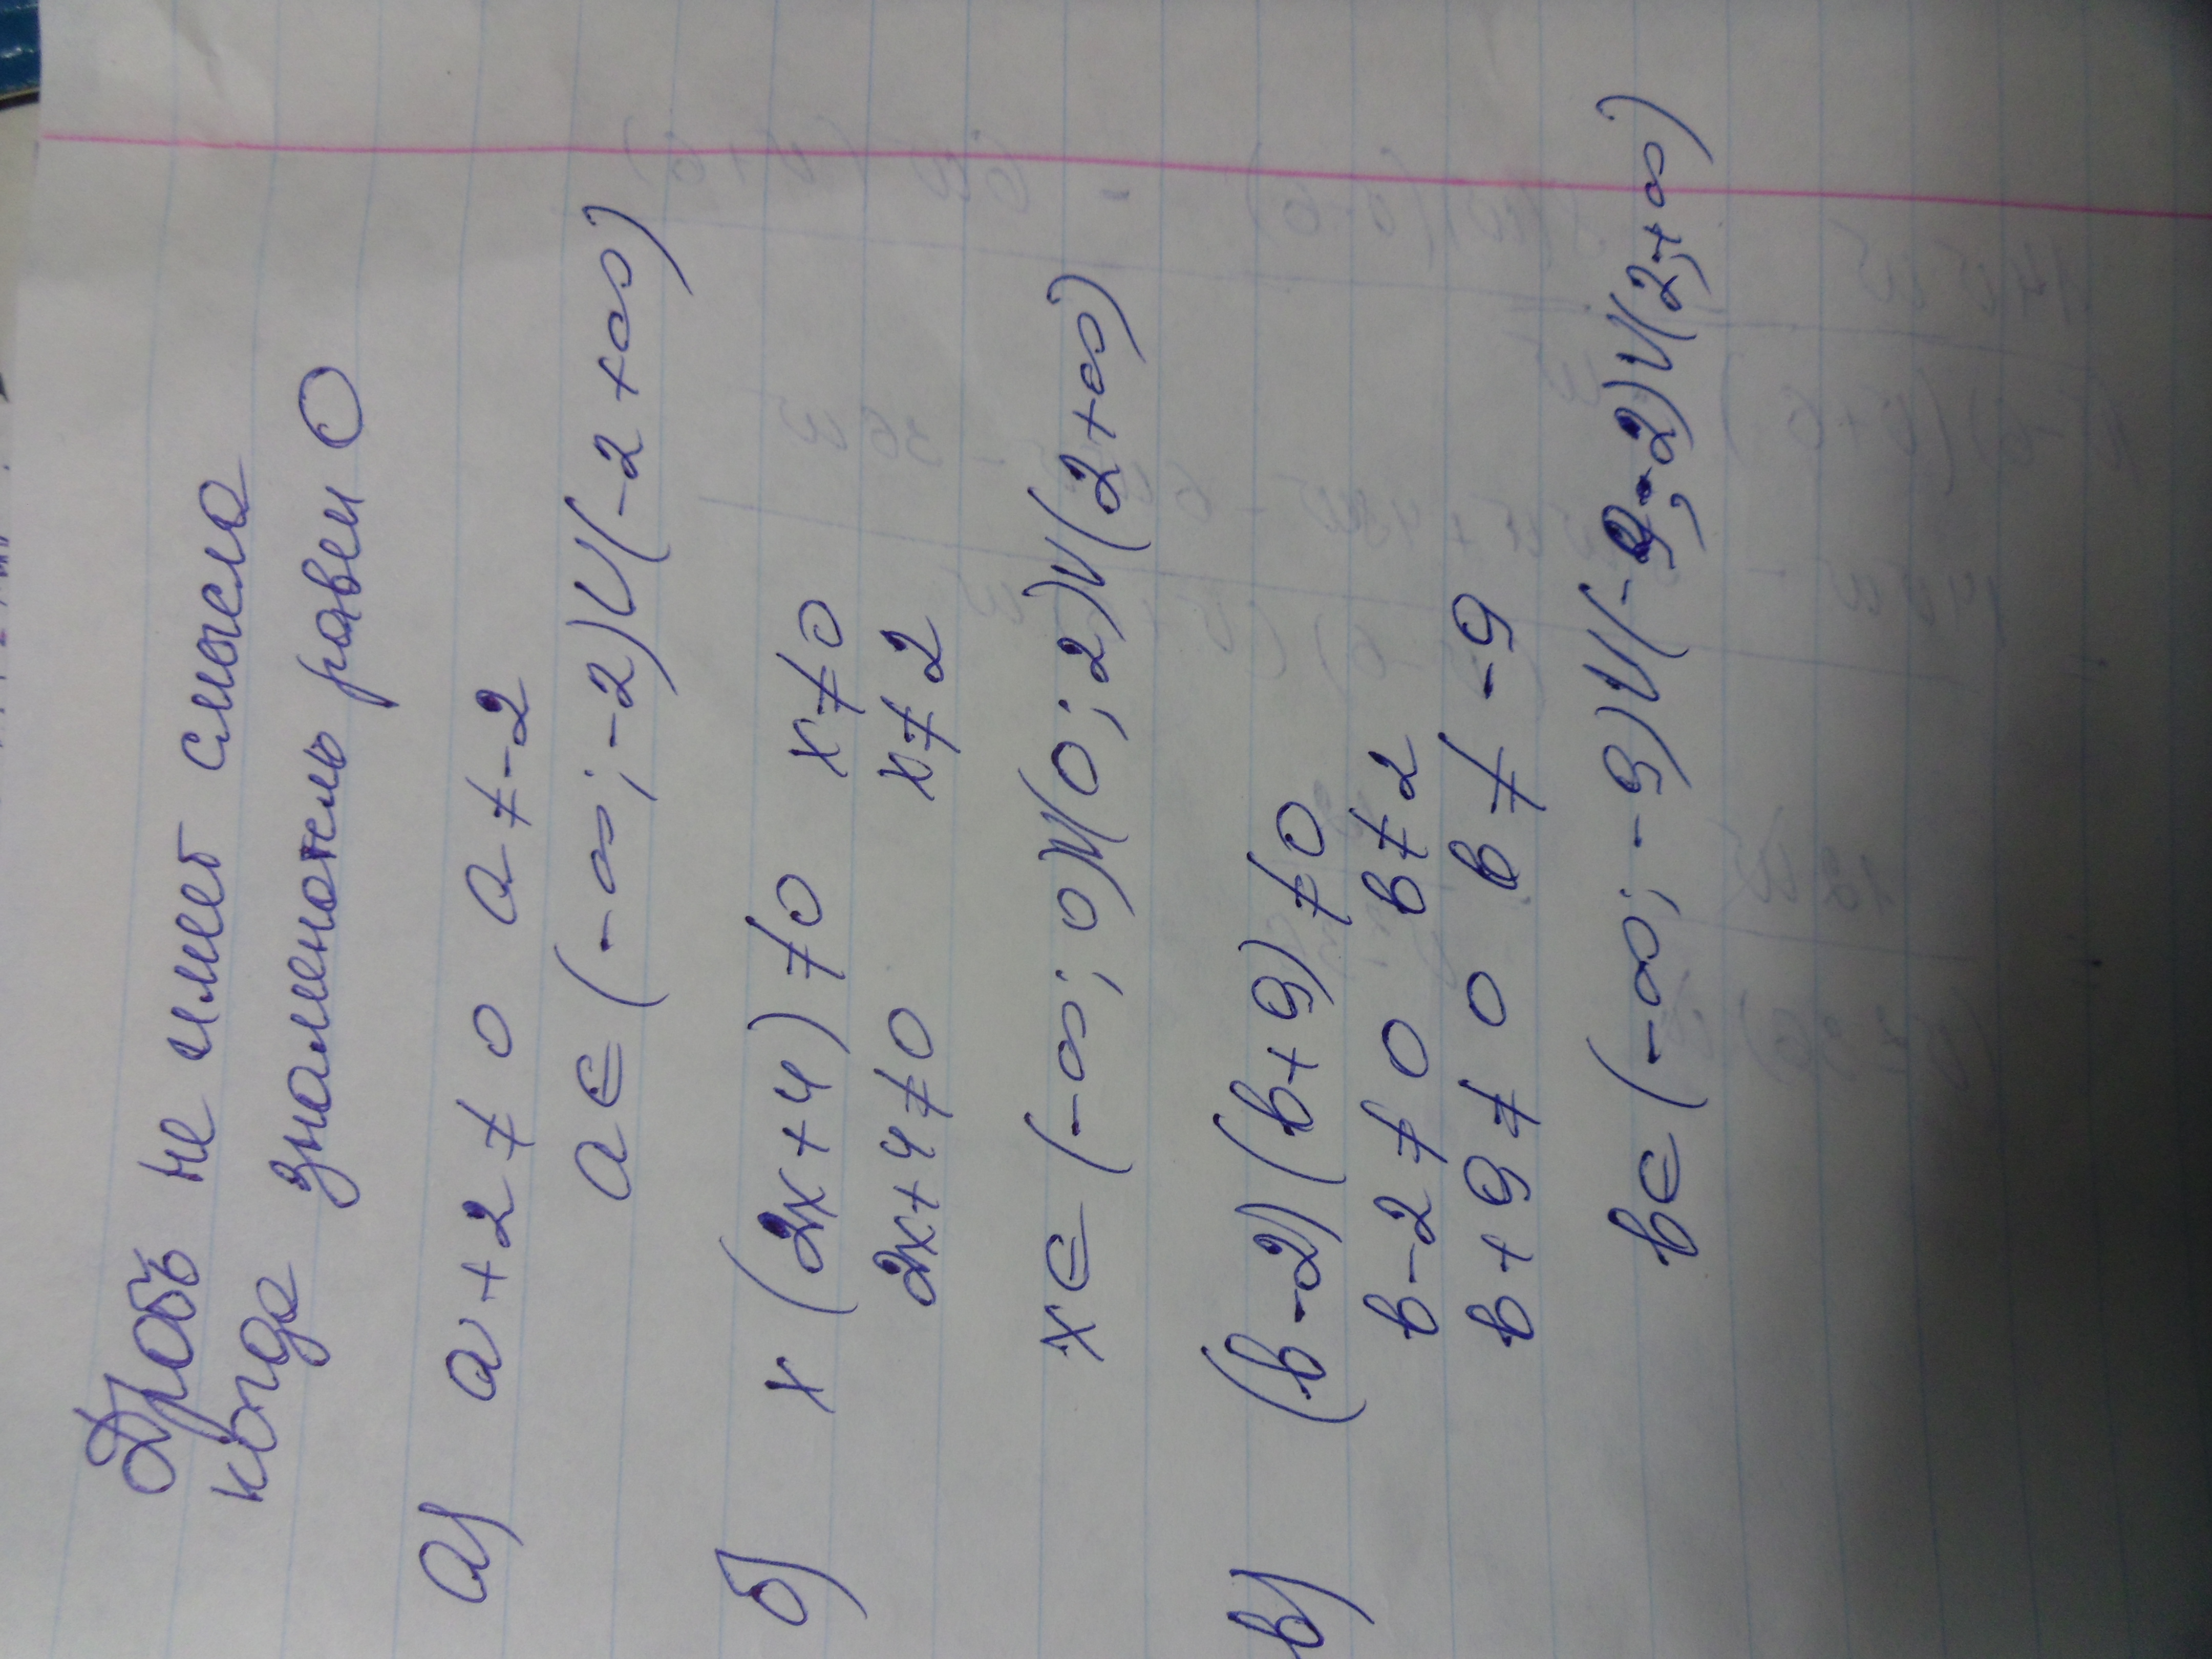 Дробь не имеет смысла
когда знаменатель равен 0
а) a + 2 ≠ 0 a ≠ -2
a ∈ (-∞; -2) U (-2 +∞)
б) x (2x + 4) ≠ 0 x ≠ 0
2x + 4 ≠ 0 x ≠ 2
x ∈ (-∞; 0) U (0; 2) U (2 +∞)
в) (b - 2) (b + 9) ≠ 0
b - 2 ≠ 0 b ≠ 2
b + 9 ≠ 0 b ≠ -9
b ∈ (-∞; -9) U (-9; -2) U (2; +∞)